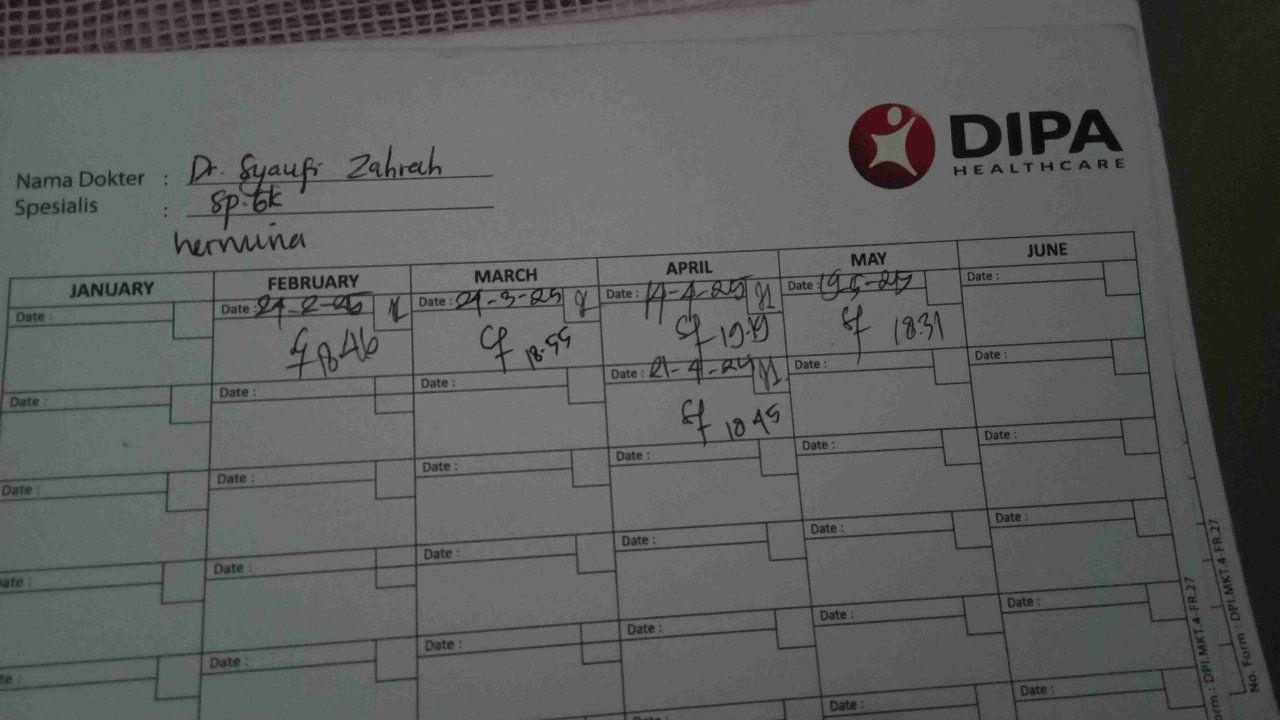 DIPA
HEALTHCARE
Nama Dokter : Dr. Syaufi Zahrah
Spesialis :
hermina
JANUARY FEBRUARY MARCH APRIL MAY JUNE
Date : Date : Date : 24-3-25 Date : 14-4-25 Date : 19-5-25 Date :
18.46 18.55 19.19 18.31
Date : Date : Date : Date : 21-4-25 Date : Date :
18.45
Date : Date : Date : Date : Date : Date :
Date : Date : Date : Date : Date : Date :
Date : Date : Date : Date : Date : Date :
Date : Date :
No. Form : DPI.MKT.4-FR.27
orm : DPI.MKT.4-FR.27